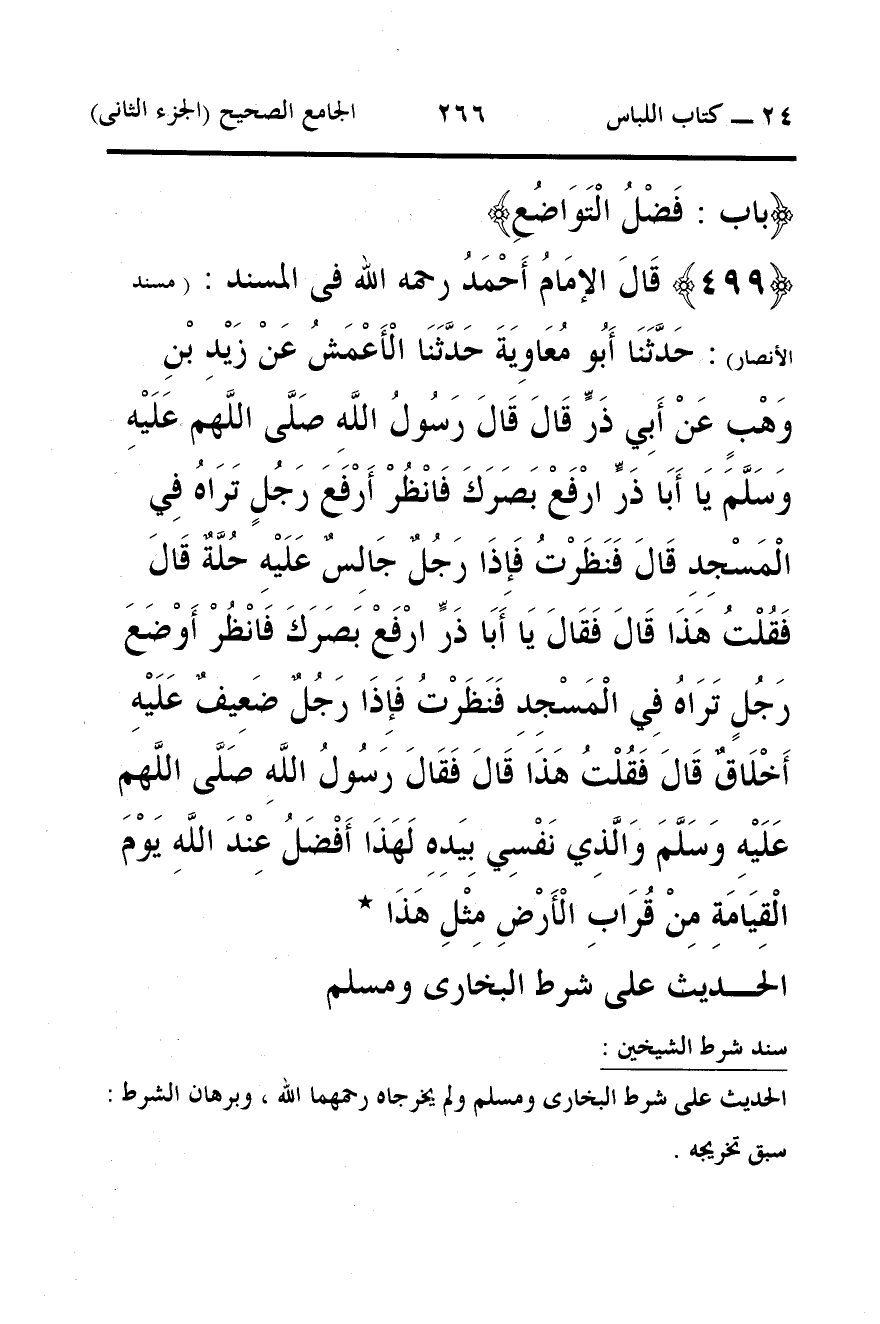 ٢٤ — كتاب اللباس ٢٦٦ الجامع الصحيح (الجزء الثانى)
﴿باب : فَضْلُ الْتَوَاضُعِ﴾
﴿٤٩٩﴾ قَالَ الإِمَامُ أَحْمَدُ رحمه الله فى المسند : ( مسند
الأنصار) : حَدَّثَنَا أَبُو مُعَاوِيَةَ حَدَّثَنَا الْأَعْمَشُ عَنْ زَيْدِ بْنِ
وَهْبٍ عَنْ أَبِي ذَرٍّ قَالَ قَالَ رَسُولُ اللَّهِ صَلَّى اللَّهم عَلَيْهِ
وَسَلَّمَ يَا أَبَا ذَرٍّ ارْفَعْ بَصَرَكَ فَانْظُرْ أَرْفَعَ رَجُلٍ تَرَاهُ فِي
الْمَسْجِدِ قَالَ فَنَظَرْتُ فَإِذَا رَجُلٌ جَالِسٌ عَلَيْهِ حُلَّةٌ قَالَ
فَقُلْتُ هَذَا قَالَ فَقَالَ يَا أَبَا ذَرٍّ ارْفَعْ بَصَرَكَ فَانْظُرْ أَوْضَعَ
رَجُلٍ تَرَاهُ فِي الْمَسْجِدِ فَنَظَرْتُ فَإِذَا رَجُلٌ ضَعِيفٌ عَلَيْهِ
أَخْلَاقٌ قَالَ فَقُلْتُ هَذَا قَالَ فَقَالَ رَسُولُ اللَّهِ صَلَّى اللَّهم
عَلَيْهِ وَسَلَّمَ وَالَّذِي نَفْسِي بِيَدِهِ لَهَذَا أَفْضَلُ عِنْدَ اللَّهِ يَوْمَ
الْقِيَامَةِ مِنْ قُرَابِ الْأَرْضِ مِثْلِ هَذَا *
الحـــديث على شرط البخارى ومسلم
سند شرط الشيخين :
الحديث على شرط البخارى ومسلم ولم يخرجاه رحمهما الله ، وبرهان الشرط :
سبق تخريجه .